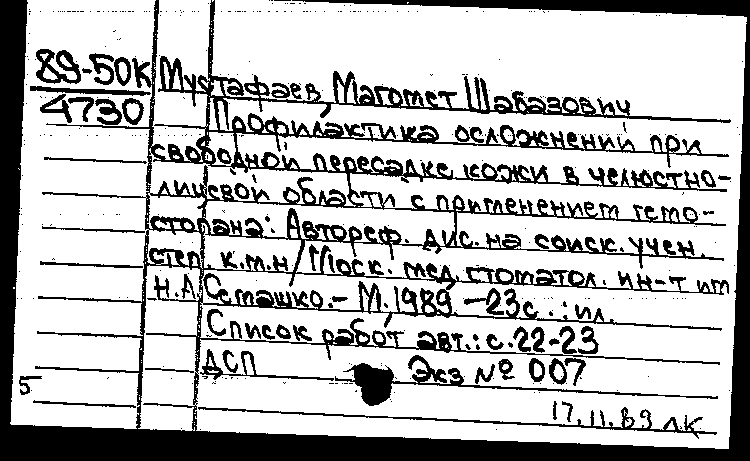 89-50К Мустафаев, Магомет Шабазович
4730 Профилактика осложнений при
свободной пересадке кожи в челюстно-
лицевой области с применением гемо-
стопана: Автореф. дис. на соиск. учен.
степ. к.м.н/Моск. мед. стоматол. ин-т им
Н.А. Семашко.- М., 1989. -23с. : ил.
Список работ авт.: с.22-23
ДСП Экз № 007
5
17.11.89 ЛК